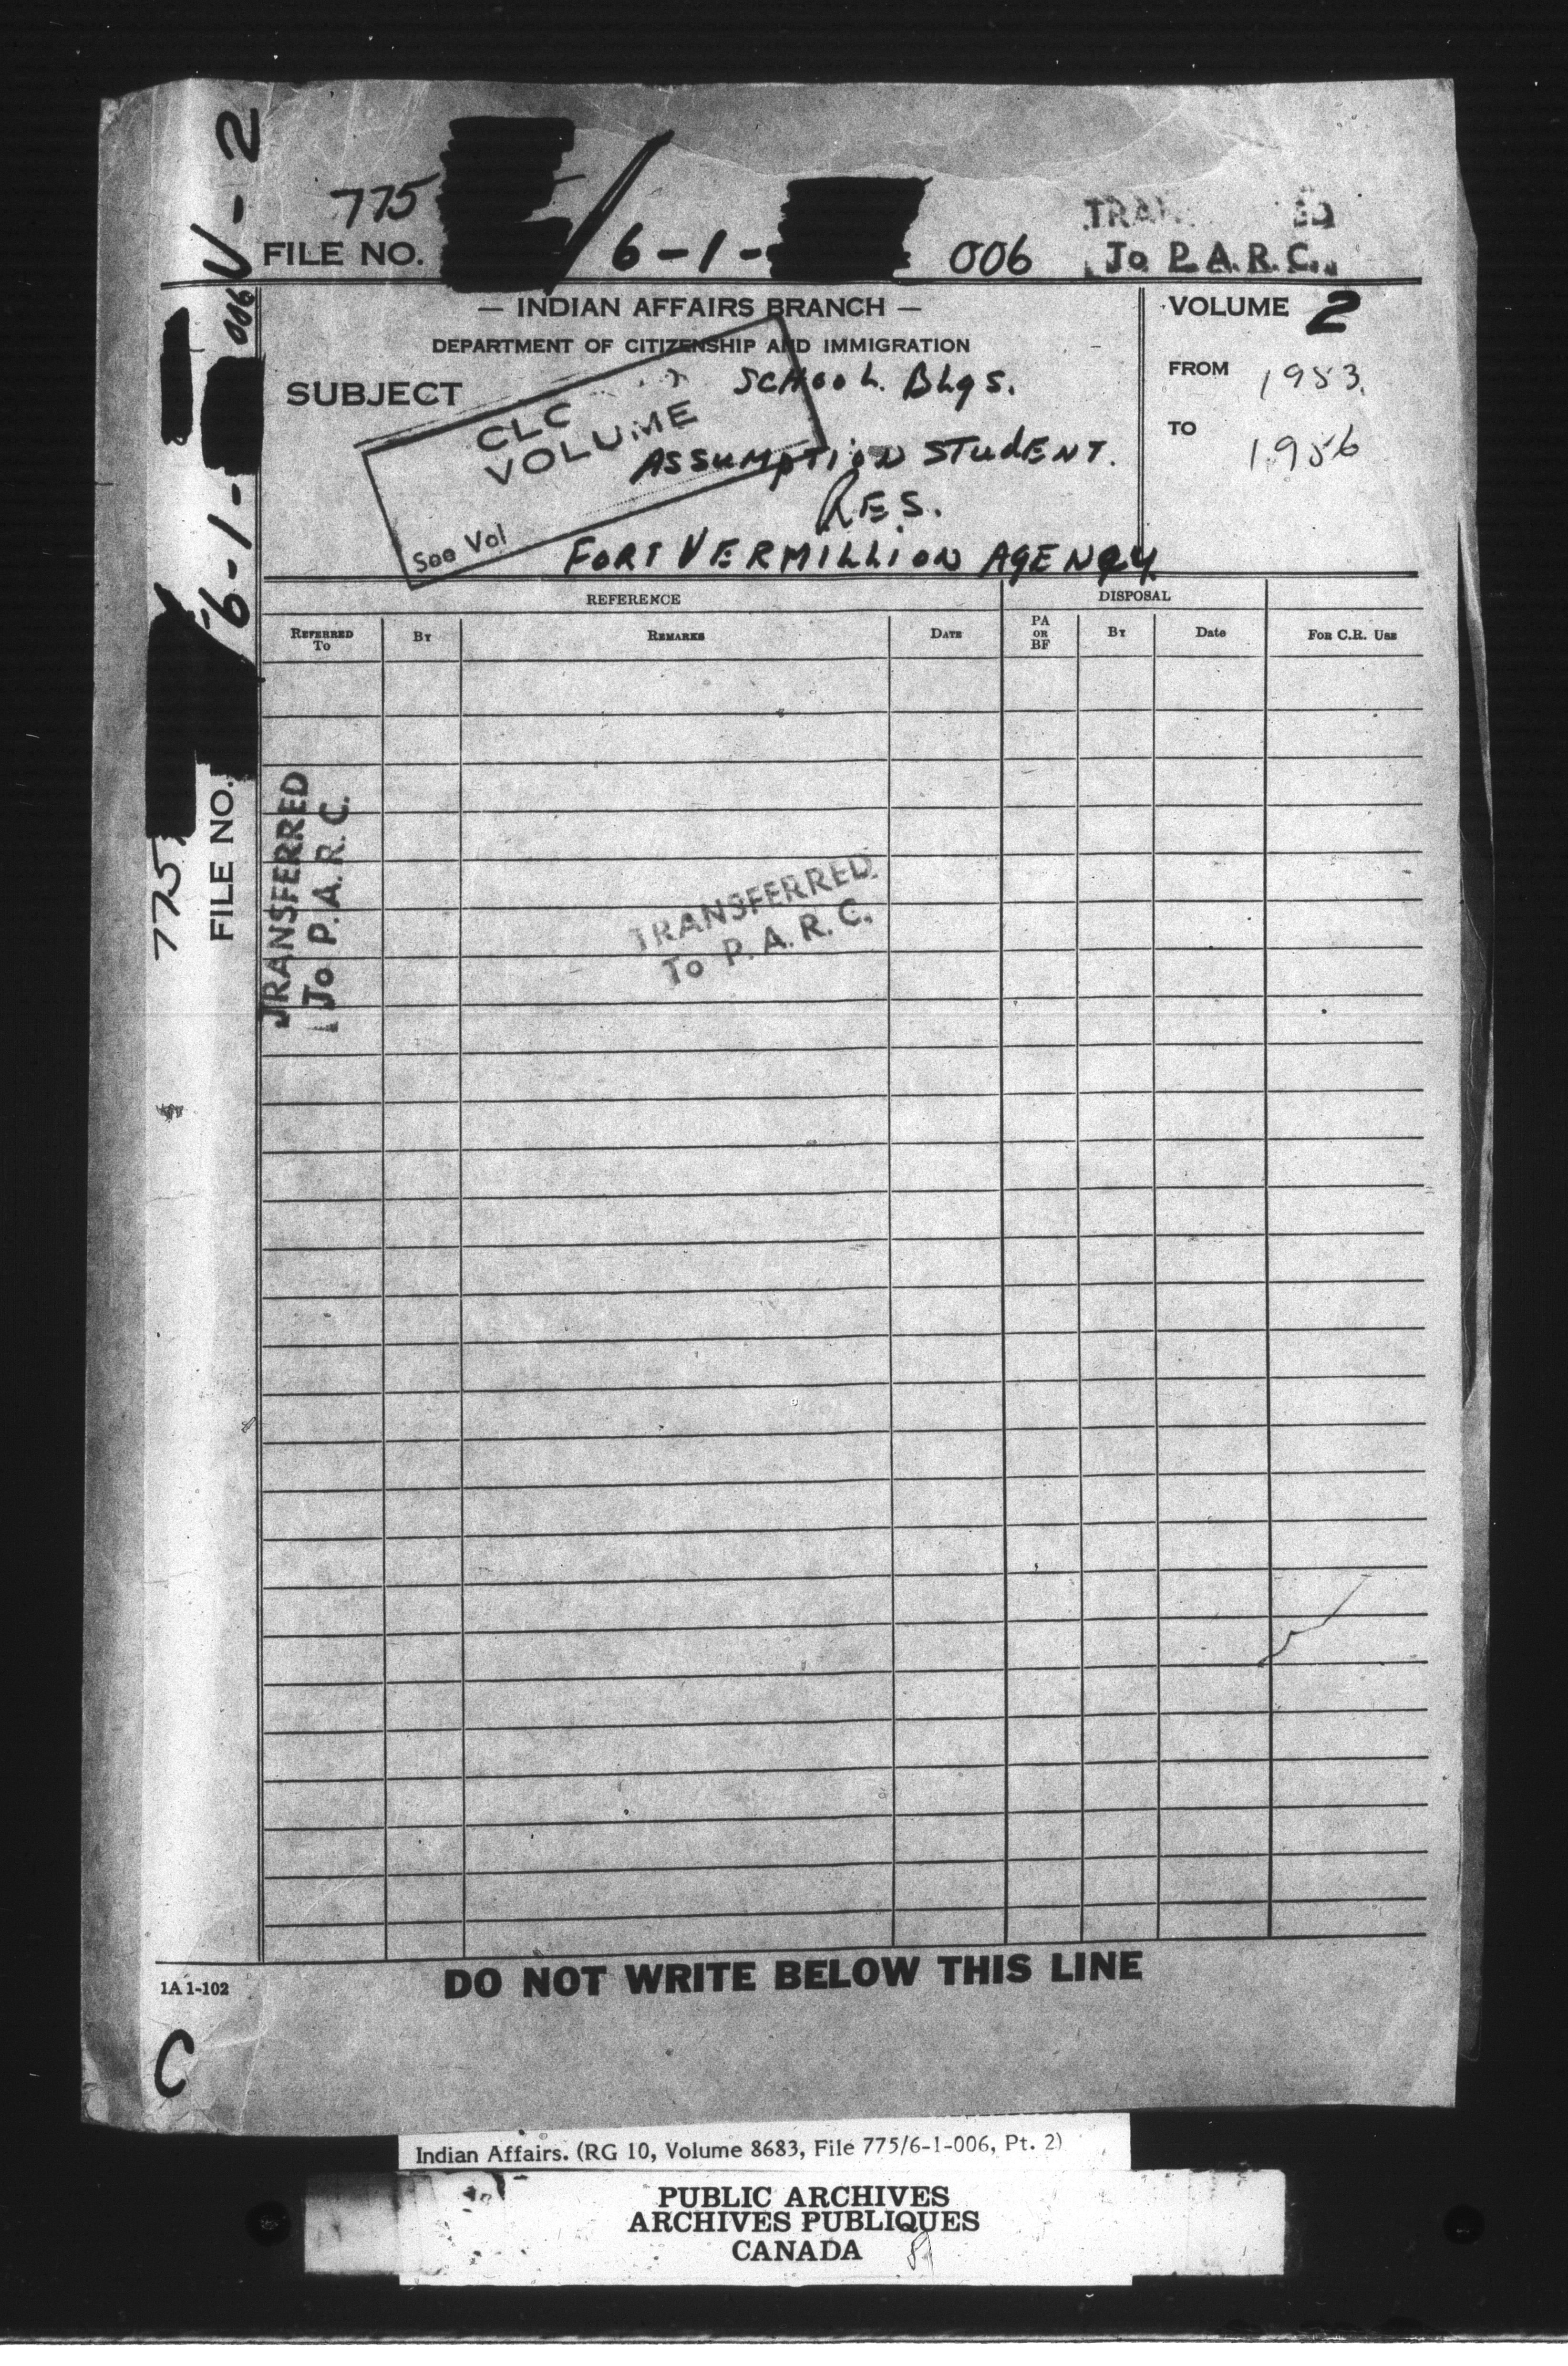 775
FILE NO. / 6-1- 006
To P.A.R.C.
— INDIAN AFFAIRS BRANCH —
DEPARTMENT OF CITIZENSHIP AND IMMIGRATION
SUBJECT
SCHOOL. Blgs.
ASSUMPTION STUDENT.
RES.
FORT VERMILLION AGENCY
CLC
VOLUME
See Vol
VOLUME 2
FROM 1953
TO 1956
REFERENCE
DISPOSAL
REFERRED
TO
BY
REMARKS
DATE
PA
OR
BF
BY
Date
FOR C.R. USE
V-2
775 / 6-1- 006
FILE NO.
TRANSFERRED
To P.A.R.C.
TRANSFERRED
To P.A.R.C.
DO NOT WRITE BELOW THIS LINE
1A 1-102
C
Indian Affairs. (RG 10, Volume 8683, File 775/6-1-006, Pt. 2)
PUBLIC ARCHIVES
ARCHIVES PUBLIQUES
CANADA